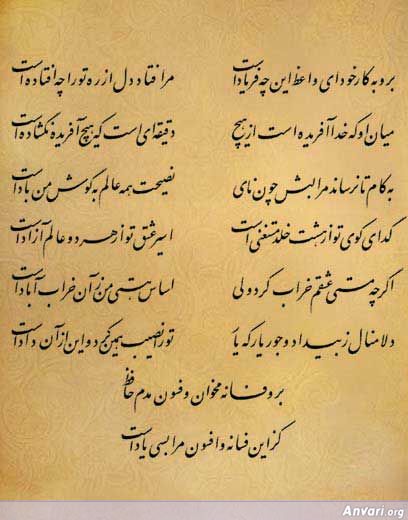 برو به کار خود ای واعظ این چه فریاد است مرا فتاد دل از ره تو را چه افتاده است
میان او که خدا آفریده است از هیچ دقیقه‌ای است که هیچ آفریده نگشاده است
به کام تا نرساند مرا لبش چون نای نصیحت همه عالم به گوش من باد است
گدای کوی تو از هشت خلد مستغنی است اسیر عشق تو از هر دو عالم آزاد است
اگرچه مستی عشقم خراب کرد ولی اساس هستی من زآن خراب آباد است
دلا منال ز بیداد و جور یار که یار تو را نصیب همین کرد و این از آن داد است
برو فسانه مخوان و فسون مدم حافظ
کز این فسانه و افسون مرا بسی یاد است
Anvari.org